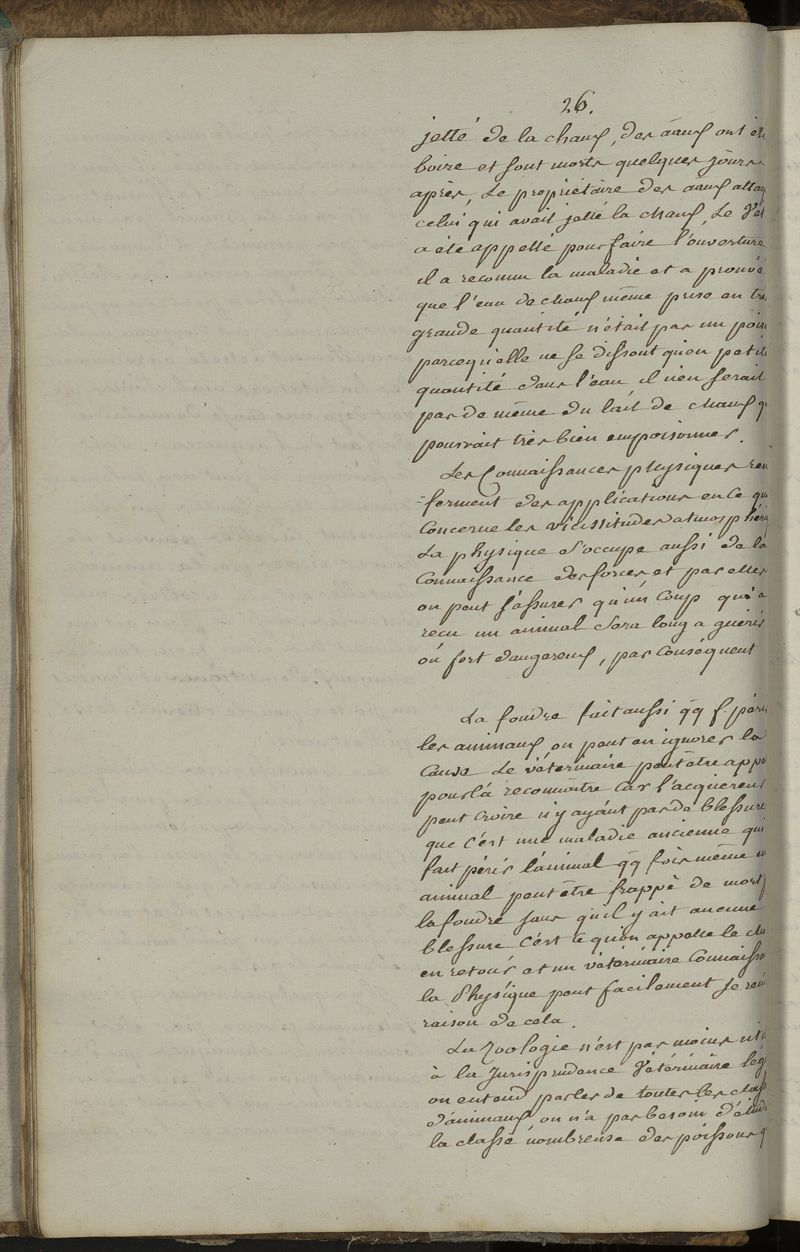 26.
jetté de la chaux, des eaux ont été
boire et sont morts quelques jours
après, Le propriétaire des eaux attaq
celui qui avait jetté la chaux, Le Vét
a été appellé pour faire l'ouverture
il a reconnu la maladie et a prouvé
que l'eau de chaux même prise en tre
grande quantité n'était pas un poiso
parcequ'elle ne se dissout qu'en petite
quantité dans l'eau, il n'en serait
pas de même du lait de chaux q
pourrait très bien empoisonner.
Les Connaissances physiques ren
-ferment des applications en ce qui
Concerne les vicissitudes atmosphériq
La physique s'occupe aussi de la
Connaissance des forces et par elles
on peut s'assurer qu'un Coup qu'a
recu un animal sera long a guérir
où fort dangereux, par Conséquent
La foudre fait aussi qq f. périr
les animaux, on peut en ignorer la
Cause Le vétérinaire peut être appe
pour la reconnaitre Car l'acquereur
peut croire n'y ayant pas de blessure
que c'est une maladie ancienne qui
fait périr l'animal qq fois même u
animal peut être frappé de mort p
la foudre sans qu'il y ait aucune
blessure C'est ce qu'on appelle le cho
en retour et un vétérinaire Connaissa
la Physique peut facilement se ren
raison de cela.
La Zoologie n'est pas moins uti
à la Jurisprudence Vétérinaire lég
on entend parler de toutes les class
d'animaux, on n'a pas besoin d'étudi
la classe nombreuse des poissons q